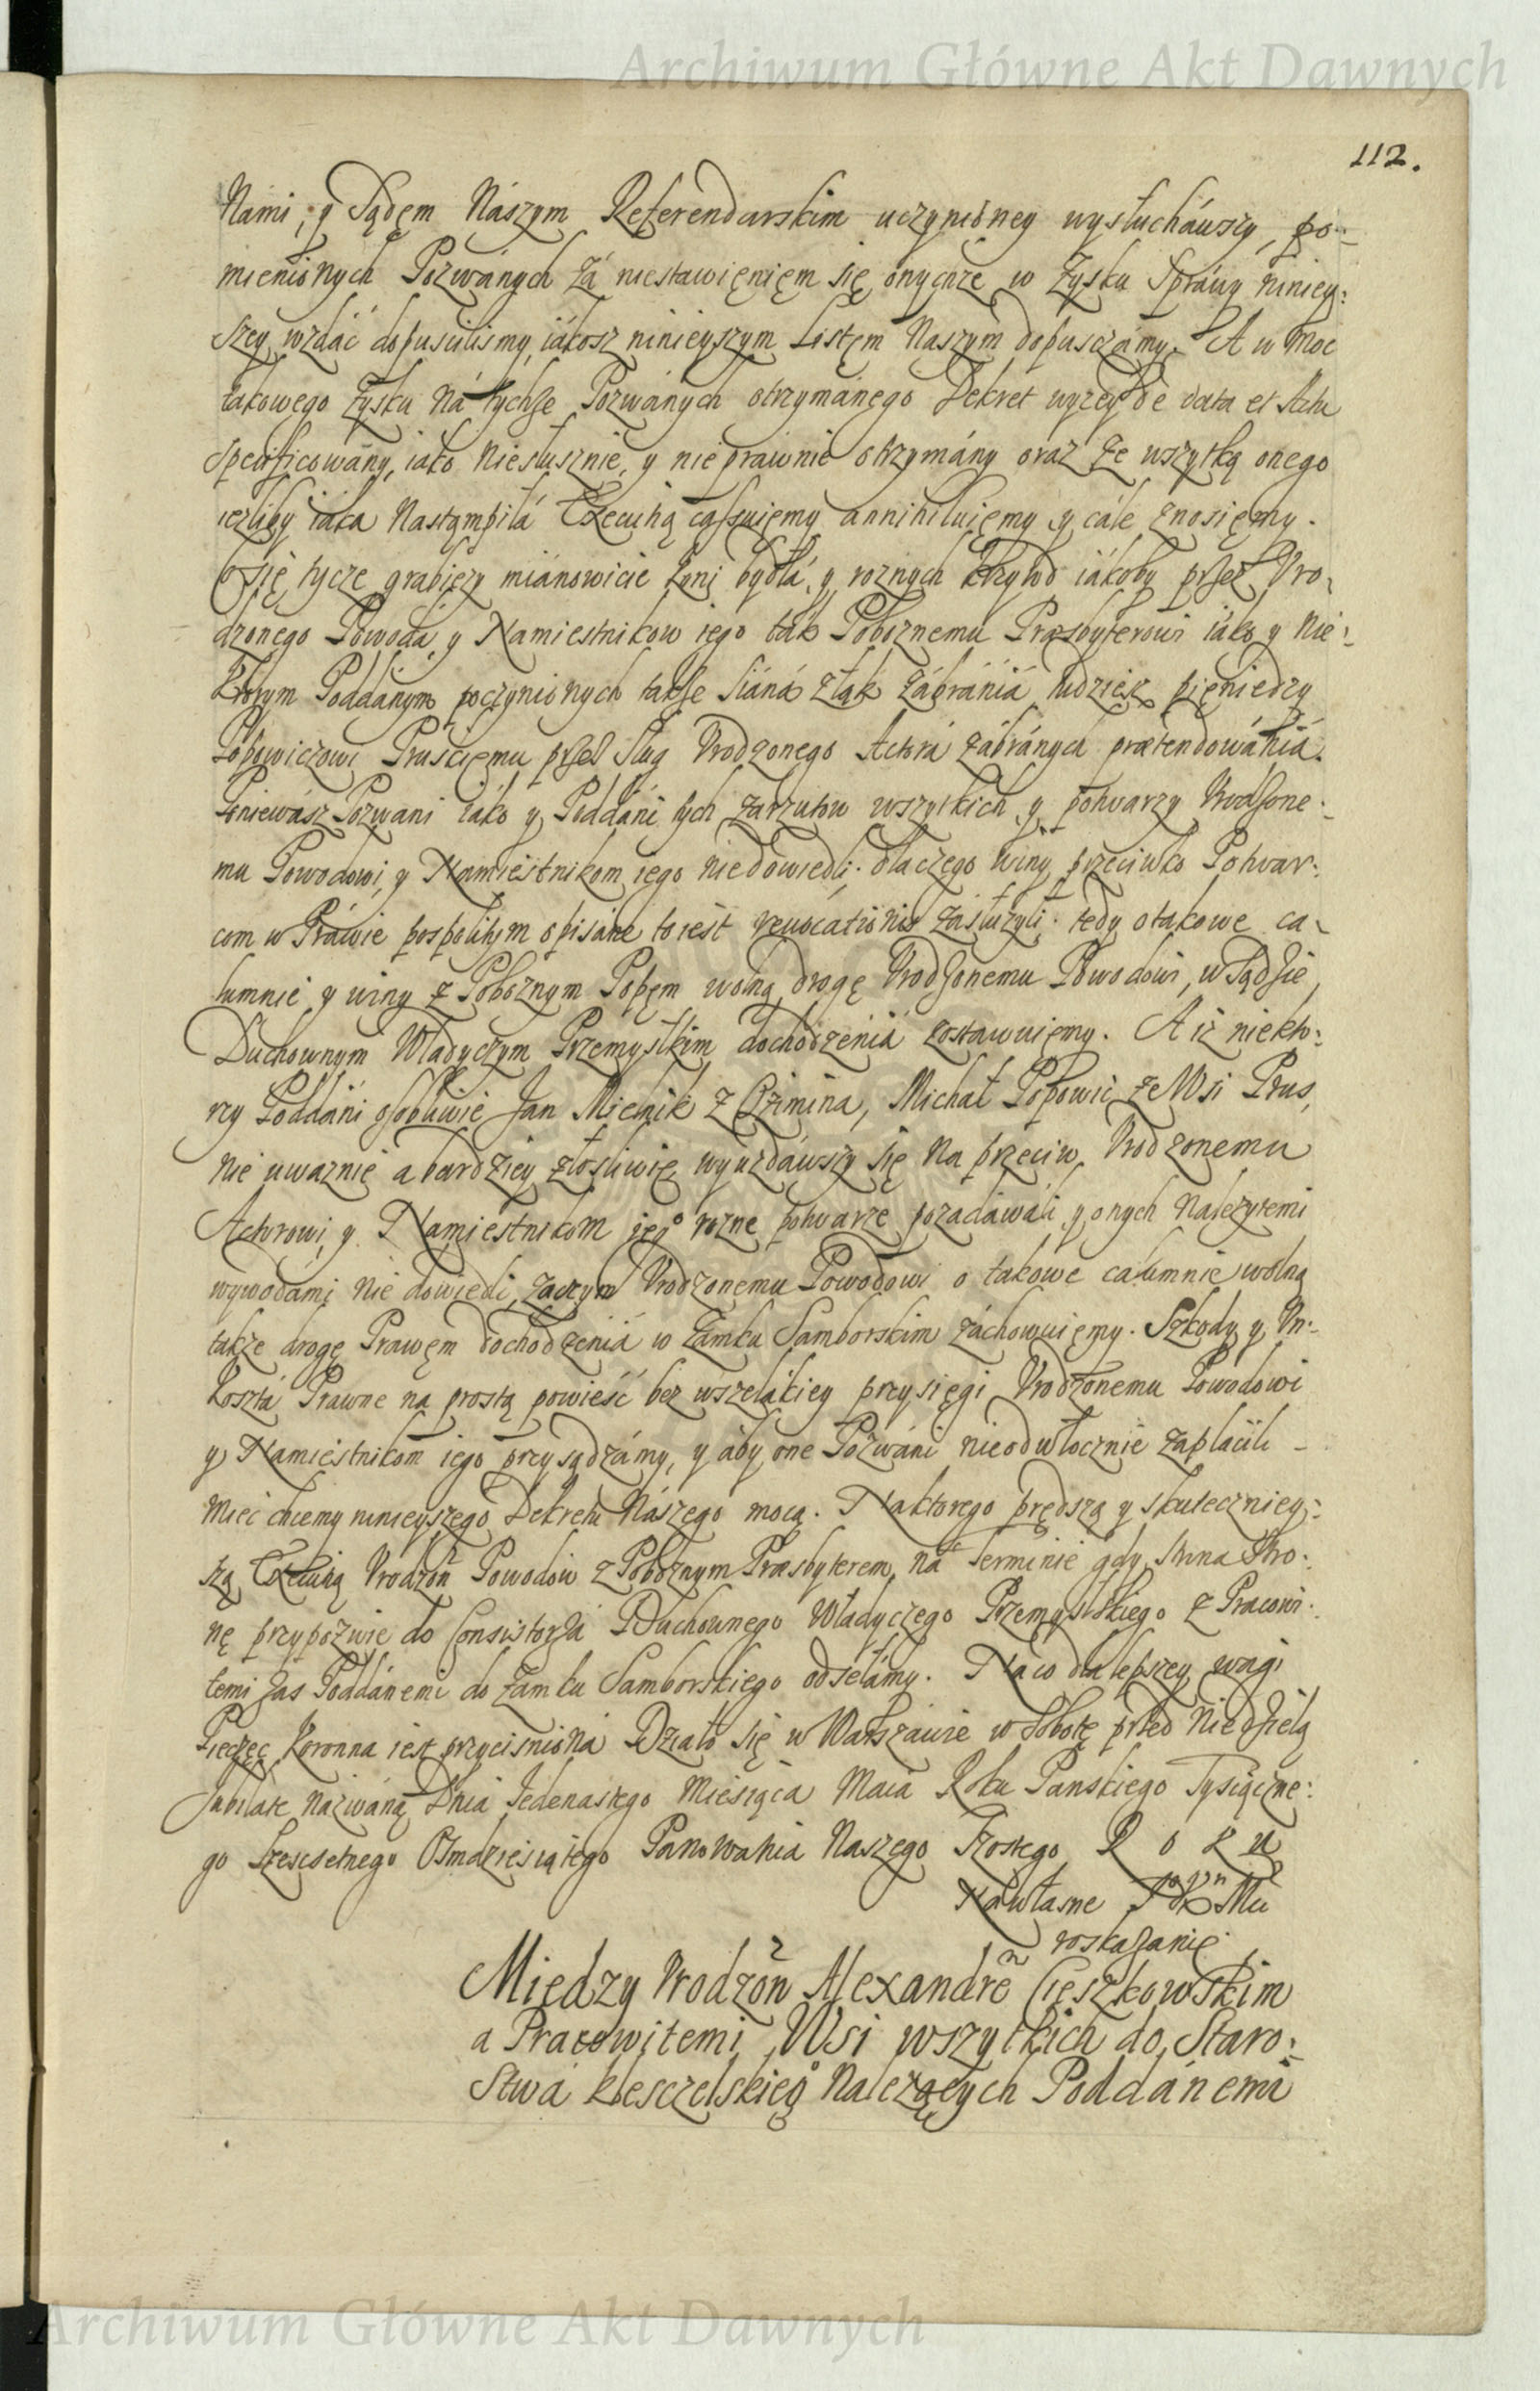 Archiwum Główne Akt Dawnych
112.
Nami, y Sądęm Nászym Referendarskim uczynioney wysłucháwszy, po-
mienionych Pozwánych zá niestawięnięm się onychże w zysku Spráwy niniey:
szey wzdáć dopuscilismy, iákosz ninieyszym Listęm Naszym dopusczámy. A w moc
takowego zysku ná tychże Pozwánych otrzymánego Dekret wyzey de data et Actu
specificowány, iáko niesłusznie, y nieprawnie otrzymány oraz ze wszytką onego
iezliby iáka nastąmpiłá Executią cassuięmy annihiluięmy y cále znosięmy.
Co się tycze grabieży miánowicie koni bydłá, y roznych krzywd iákoby przez Vro-
dzonego Powodá, y Namiestnikow iego ták Poboznemu Præsbyterowi iáko y nie:
ktorym Poddánym poczynionych także siáná złąk zábránia, tudziesz pięniedzy
Popowiczowi Pruscięmu przes Sług Vrodzonego Actorá zábránych prætendowánia.
Poniewász Pozwani iáko y Poddáni tych zarzutow wszytkich, y potwarzy Vrodzone-
mu Powodowi, y Namiestnikom iego niedowiedli; dlaczego winy przeciwko Potwar:
com w Práwie pospolitym opisáne to iest revocationis zásłuzyli: tedy o takowe ca-
lumnie y winy z Poboznym Popęm wolną drogę Vrodzonemu Powodowi, w Sądzie
Duchownym Władyczym Przemyslkim dochodzęniá zostawuięmy. A iz niekto:
rzy Poddáni osobliwie Jan Mielnik z Czimina, Michał Popowic ze Wsi Prus,
nie uwaznie a bardziey złosliwie wyuzdáwszy się na przeciw Vrodzonemu
Actorowi, y Namiestnikom iego rozne potwarze pozadáwali, y onych nalezytemi
wywodámi nie dowiedli, zaczym Vrodzonemu Powodowi o takowe calumnie wolną
także drogę Prawęm dochodzęniá w Zámku Samborskim záchowuięmy. Szkody y Vn:
kosztá Prawne na prostą powieść bez wszelákiey przysięgi Vrodzonemu Powodowi
y Namiestnikom iego przysądzámy, y áby one Pozwáni nieodwłocznie zapłácili –
miec chcemy ninieyszego Dekretu Nászego mocą. Naktorego prędszą y skuteczniey:
szą Execuią Vrodzon Powodow z Poboznym Præsbyterem, ná Terminie gdy Strona Stro:
nę przypozwie do Consistorza Duchownego Władyczego Przemyslskiego z Pracowi:
temi zas Poddánemi do Zamku Samborskiego odsełámy. Na co dla lepszey wagi
Pieczęc Koronna iest przycisniona Działo się w Warszawie w Sobotę przed Niedzielą
Jubilate názwáną Dnia Jedenastego Miesiąca Maia Roku Panskiego Tysiączne:
go Szescsetnego Osmdziesiątego Panowania Naszego Szostego R o k u
Nawłasne J K Mci
roskazanie.
Między Vrodzon Alexandre Cieszkowskim
a Pracowitemi Wsi wszytkich do Staro:
Stwá kleszczelskieg Nalezących Poddánemi
Archiwum Główne Akt Dawnych